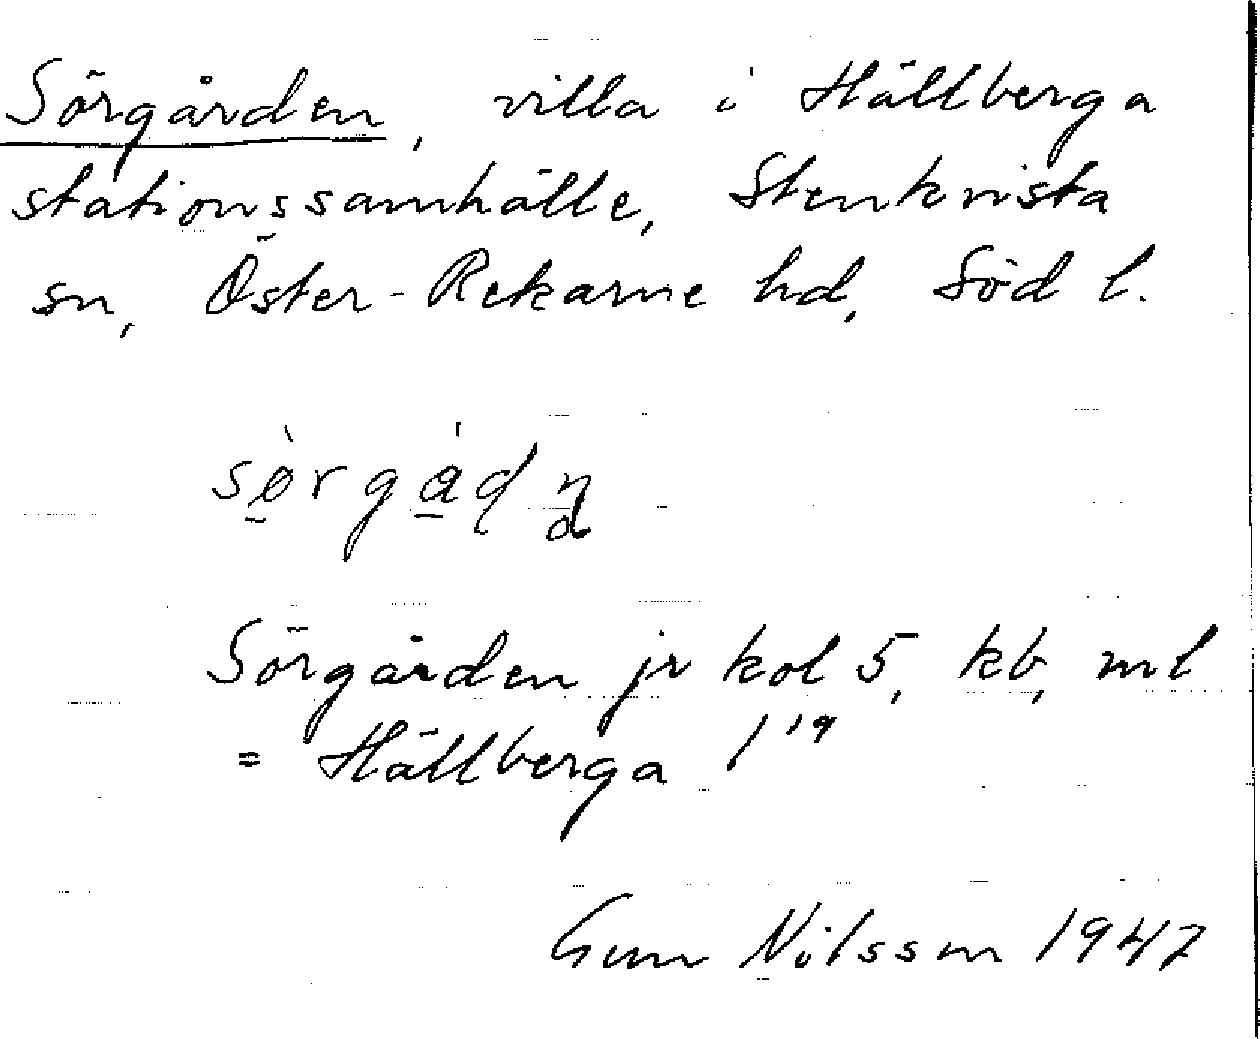 Sörgården, villa i Hällberga
stationssamhälle, Stenkvista
sn, Öster-Rekarne hd, Söd l.
Sörgården jr kol 5, kb, ml
= Hällberga 1¹⁹
Gun Nilsson 1947